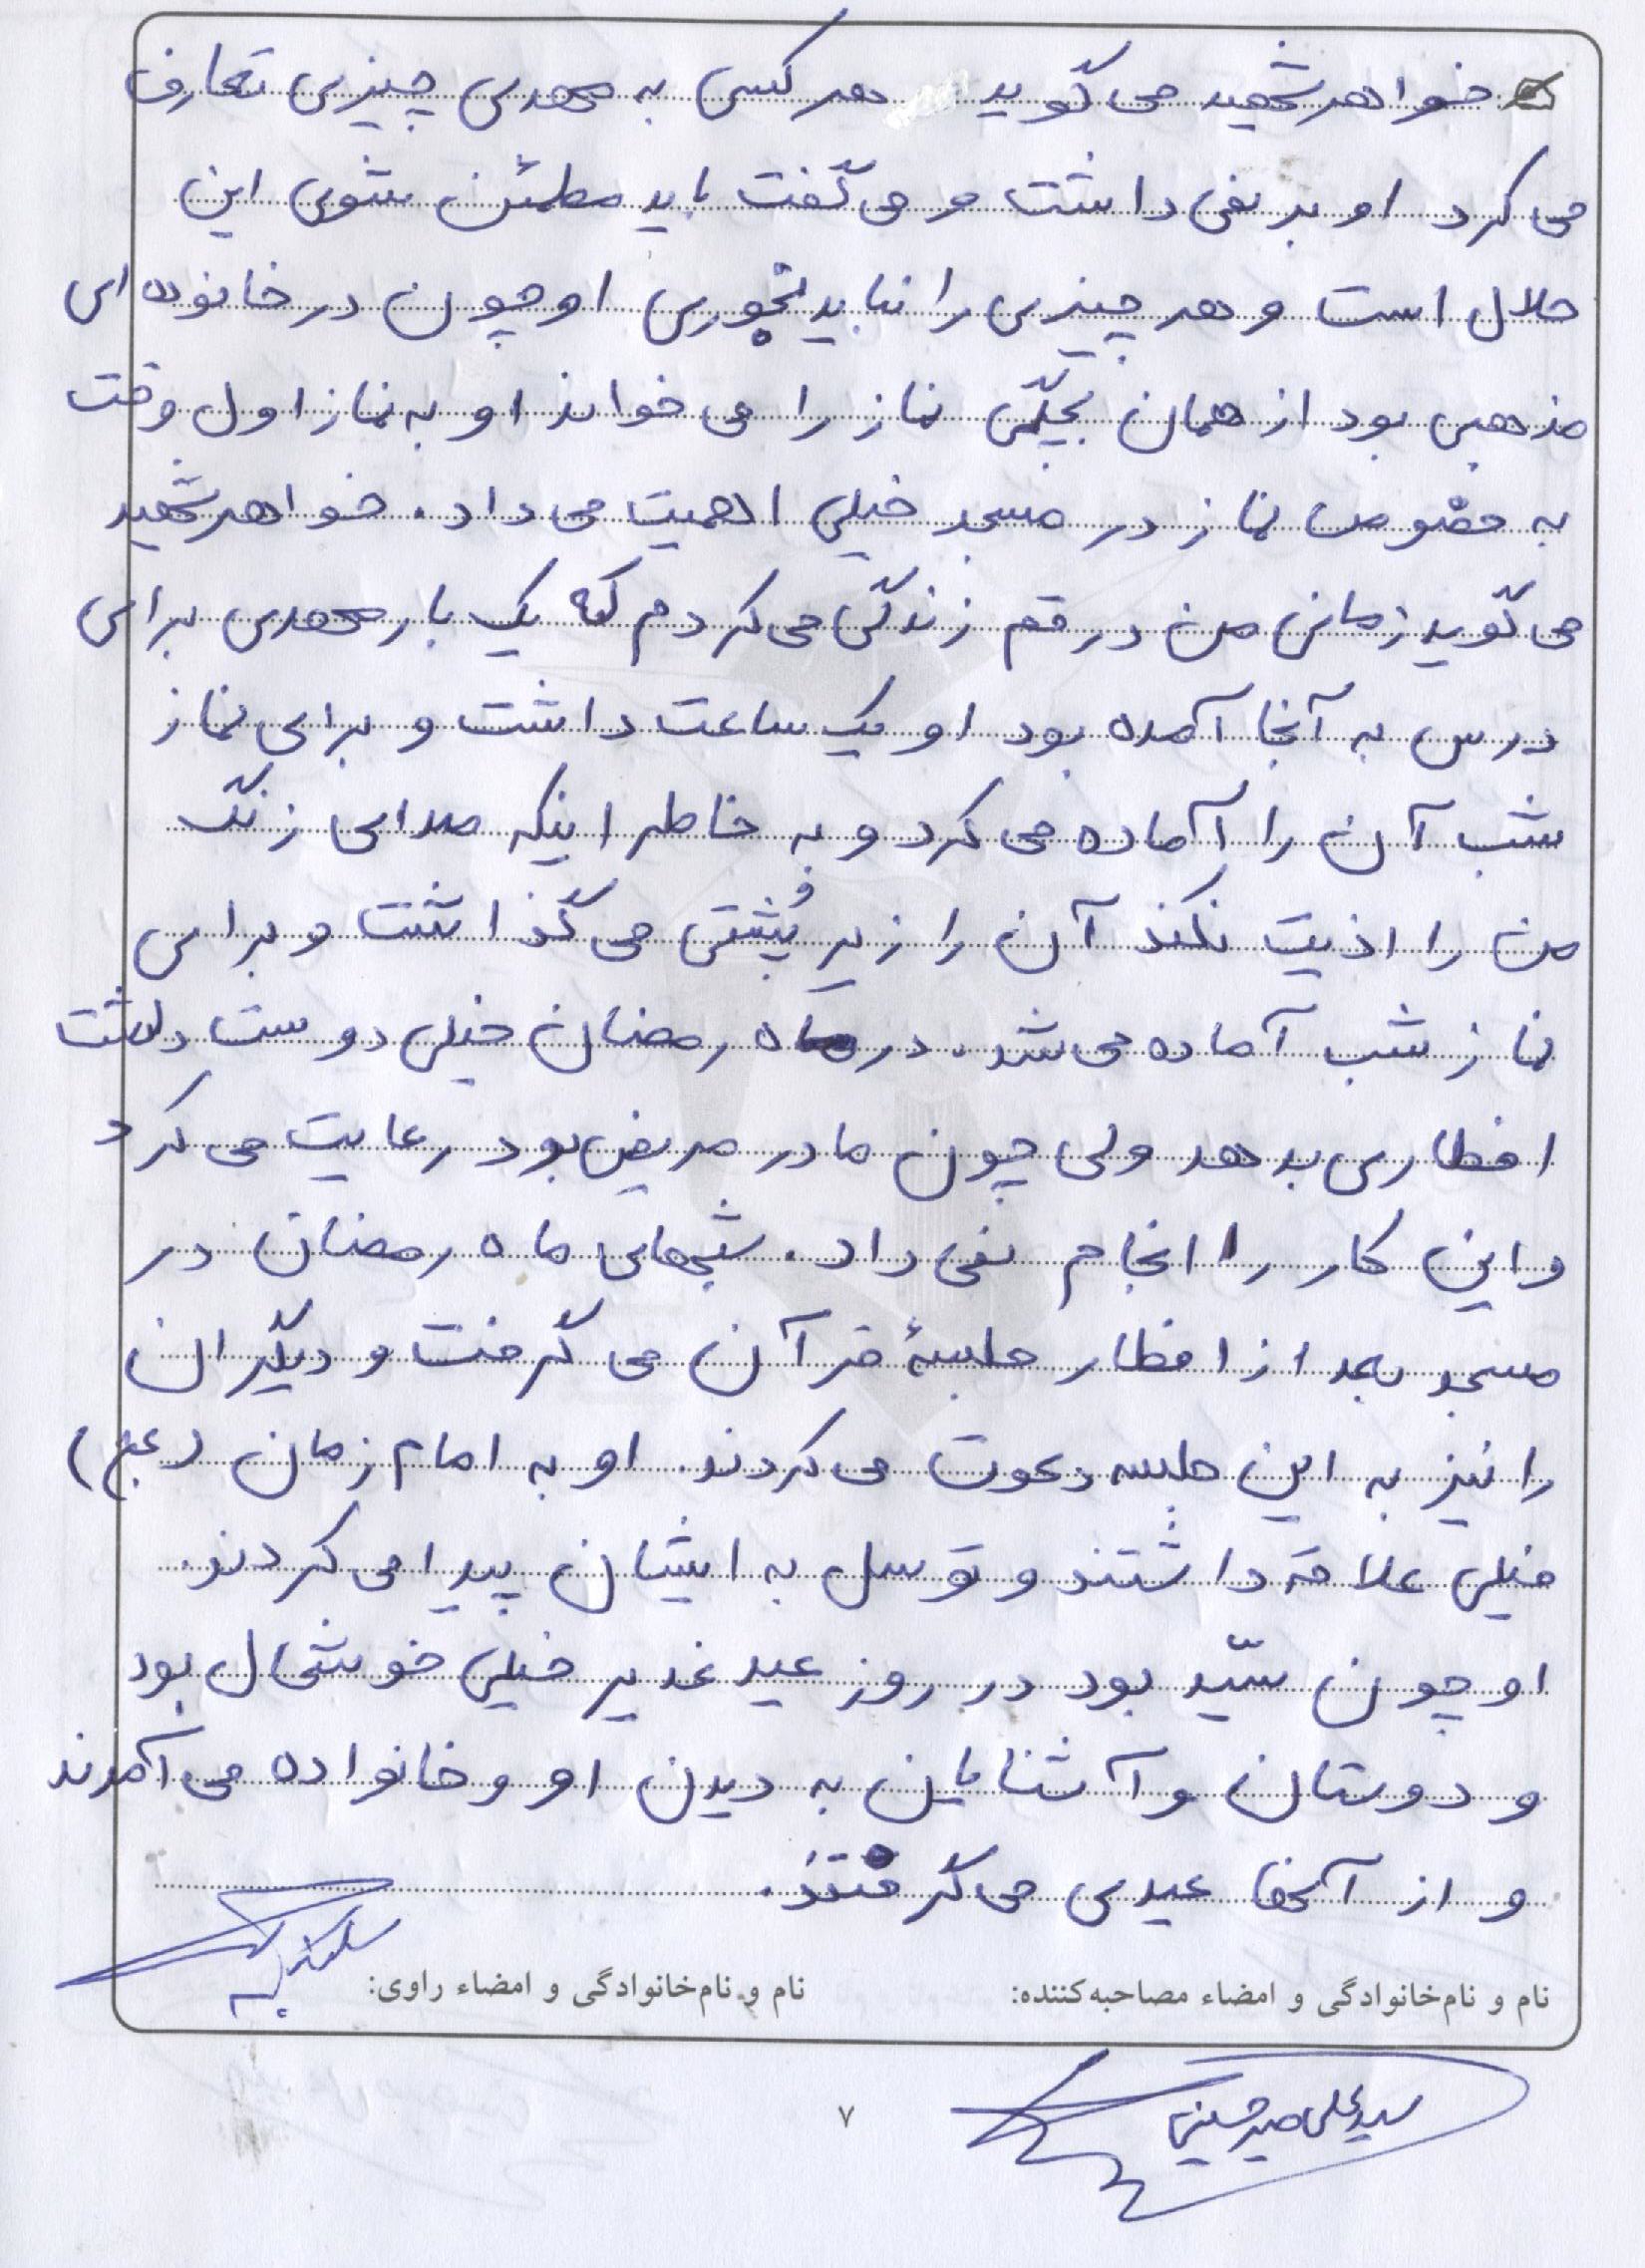 خواهر شهید می گوید هر کسی به مهدی چیزی تعارف
می کرد او بر نمی داشت و می گفت باید مطمئن شوی این
حلال است و هر چیزی را نباید بخوری او چون در خانوده ای
مذهبی بود از همان بچگی نماز را می خواند او به نماز اول وقت
به خصوص نماز در مسجد خیلی اهمیت می داد. خواهر شهید
می گوید زمانی من در قم زندگی می کردم که یک بار مهدی برای
درس به آنجا آمده بود او یک ساعت داشت و برای نماز
شب آن را آماده می کرد و به خاطر اینکه صدای زنگ
من را اذیت نکند آن را زیر پُشتی می گذاشت و برای
نماز شب آماده می شد. در ماه رمضان خیلی دوست داشت
افطاری بدهد ولی چون مادر مریض بود رعایت می کرد
و این کار را انجام نمی داد. شبهای ماه رمضان در
مسجد بعد از افطار جلسهٔ قرآن می گرفت و دیگران
را نیز به این جلسه دعوت می کردند. او به امام زمان (عج)
خیلی علاقه داشتند و توسل به ایشان پیدا می کردند.
او چون سیّد بود در روز عید غدیر خیلی خوشحال بود
و دوستان و آشنایان به دیدن او و خانواده می آمدند
و از آنها عیدی می گرفتند.
نام و نام‌خانوادگی و امضاء مصاحبه‌کننده: نام و نام‌خانوادگی و امضاء راوی:
سید علی میرحسینی
۷